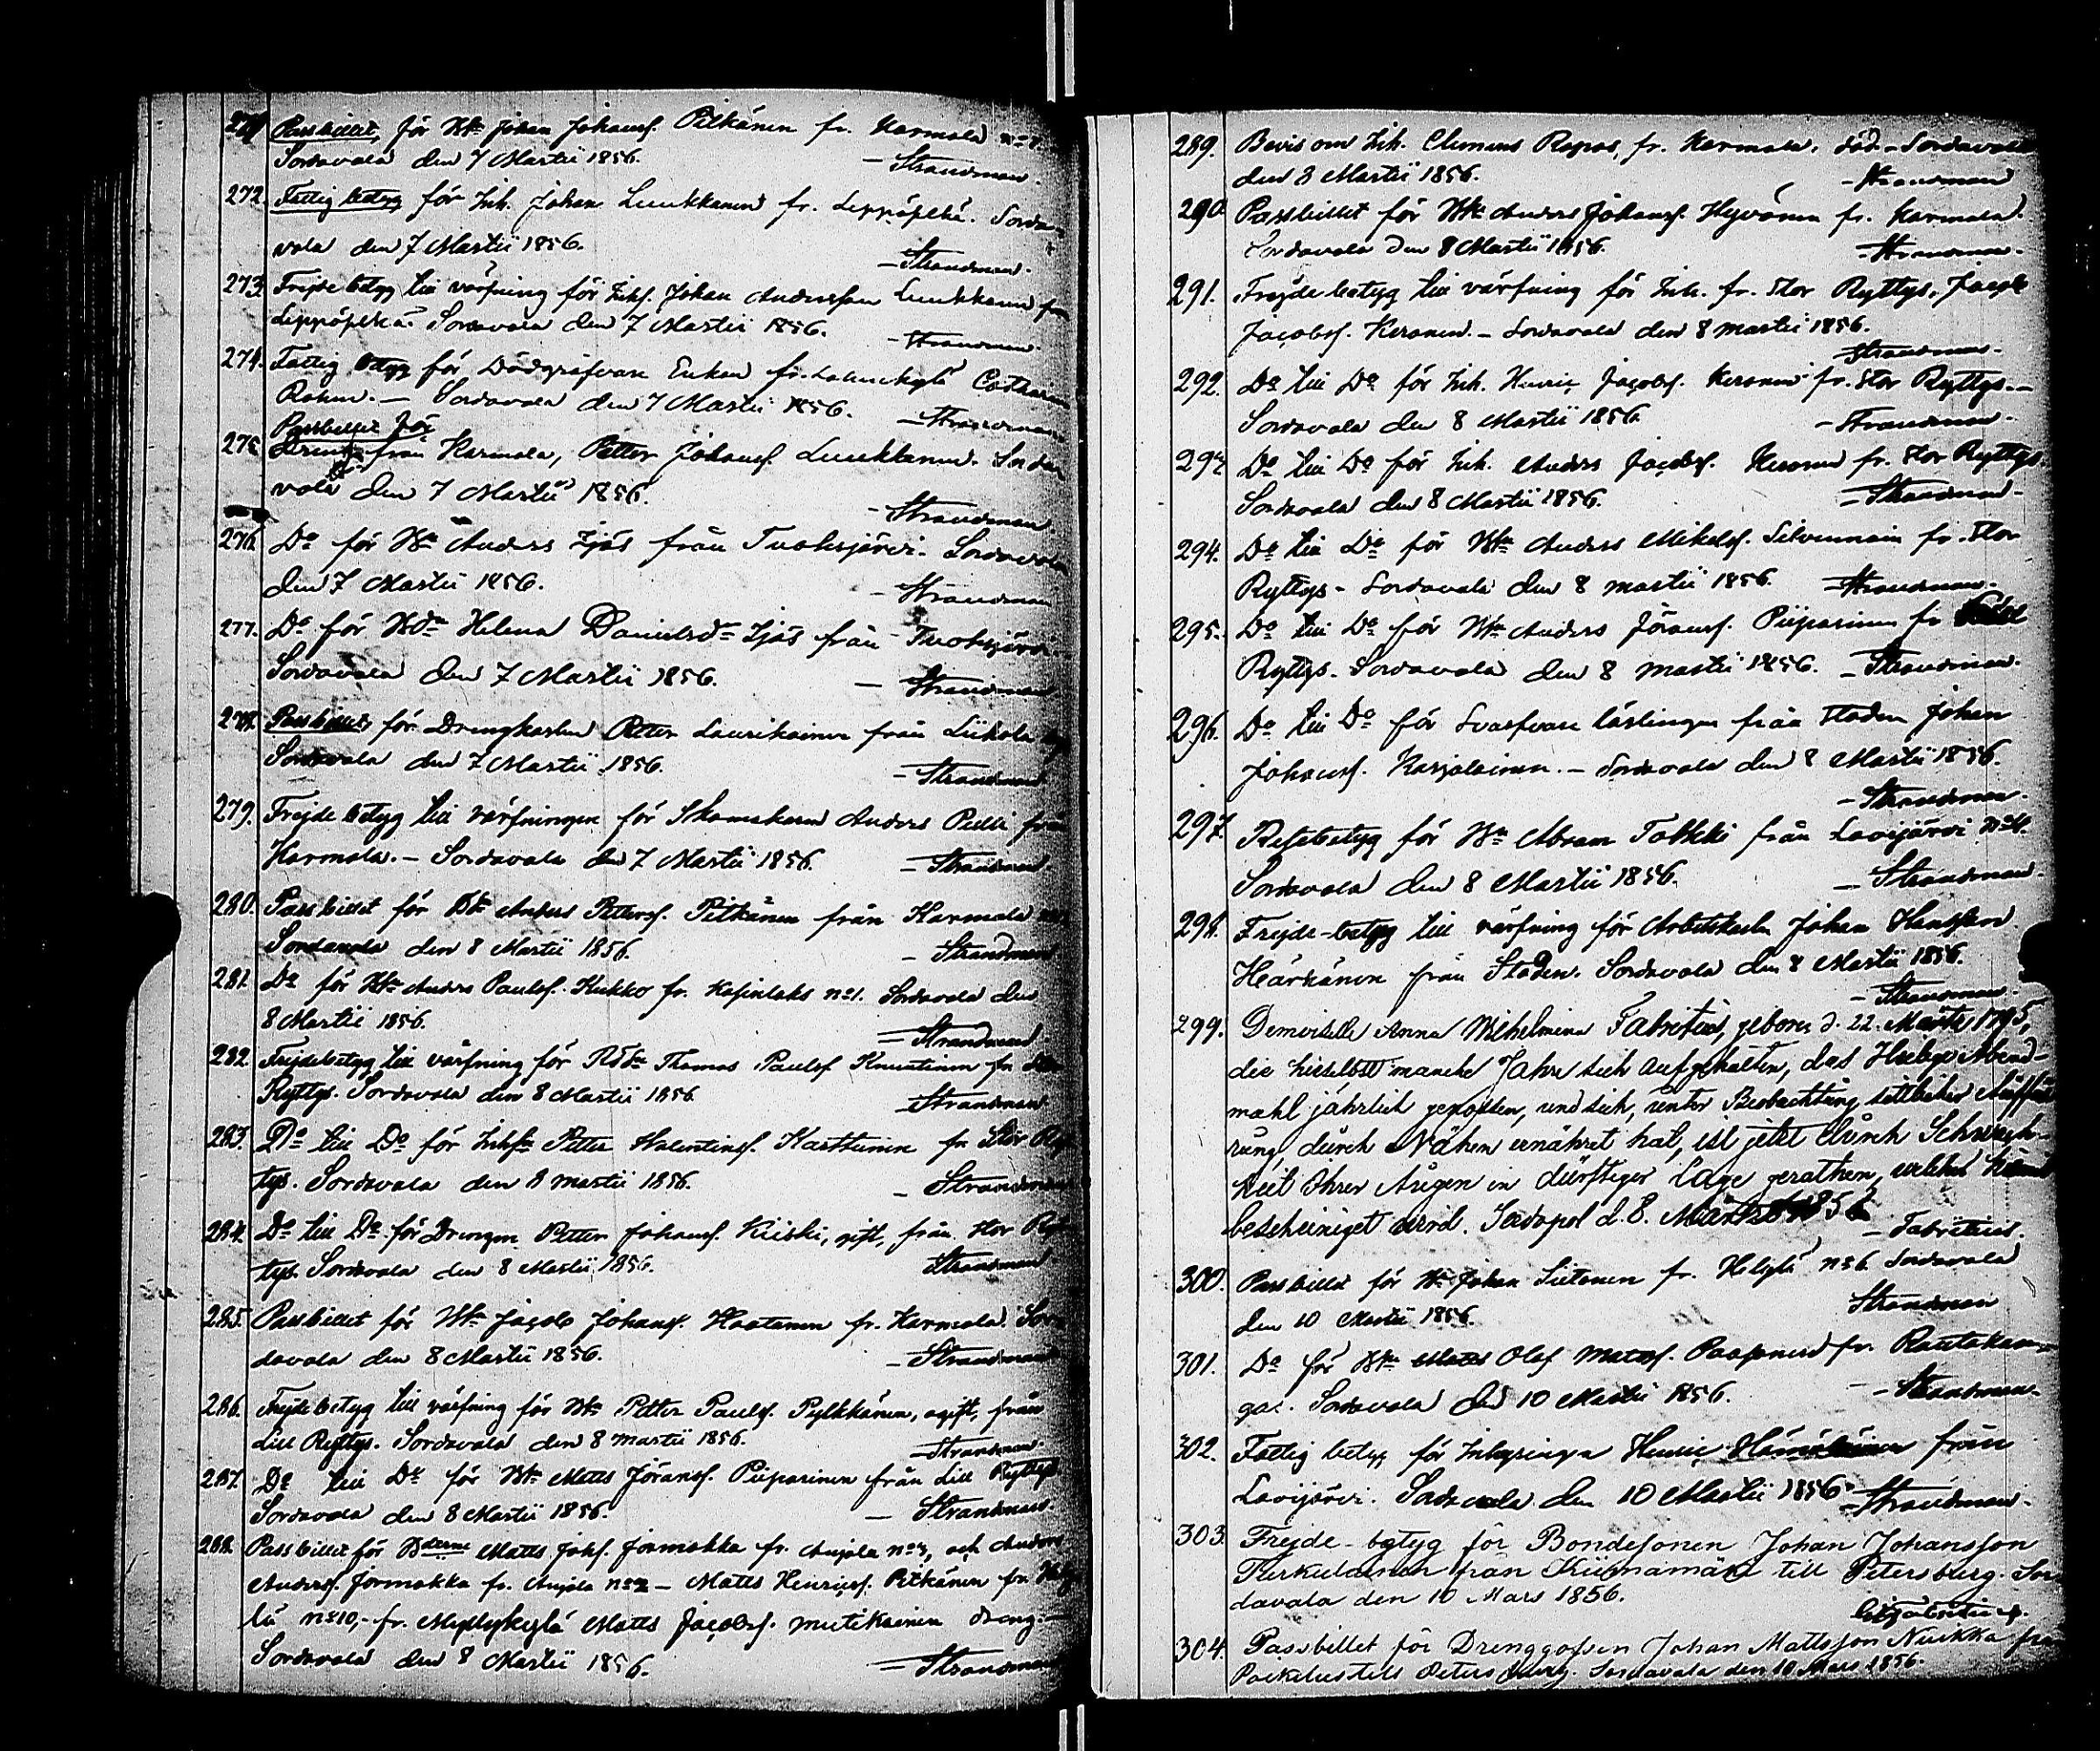 271 Passbillet, för Bde Johan Johansf. Pitkänen fr. Karmala no
Sordavala den 7 Martii 1856. – Strandman.
272. Fattig betyg för Inh. Johan Luukkanen fr. Leppäselkä. Sorda-
vala den 7 Martii 1856. – Strandman.
273. Frejdebetyg till värfning för Inhs. Johan Andersson Luukkanen fr
Leppäselkä. Sordavala den 7 Martii 1856. – Strandman
274. Fattig betyg för Dödgräfvare Enkan fr. Catharina
– Sordavala den 7 Martii 1856. – Strandman
Passbillet för
275 Dreng från Karmala, Petter Johansf. Luukkanen. Sorda
vala den 7 Martii 1856. – Strandman
276. Do för Bde Anders Ijäs från Tuoksjärvi. Sordavala
den 7 Martii 1856. – Strandman
277. Do för Helena Danielsdr Ijäs från Tuoksjärvi
Sordavala den 7 Martii 1856. – Strandman
278. Passbillet för Drengkarlen Petter Laurikainen från Liikola
Sordavala den 7 Martii 1856. – Strandman
279. Frejdebetyg till värfningen för Skomakaren Anders Pulli från
Karmala. – Sordavala den 7 Martii 1856. – Strandman
280. Passbillet för Bde Anders Pettersf. Pitkänen från Karmala
Sordavala den 8 Martii 1856. – Strandman
281. Do för Bde Anders Paulsf. Kukko fr. Kasinlaks no 1. Sordavala den
8 Martii 1856. – Strandman
282. Frejdebetyg till värfning för Thomas Paulsf Knuutinen fr. Stor
Ryttys. Sordavala den 8 Martii 1856. Strandman
283. Do till Do för Petter Valentinsf. Karttunen fr Stor Ryt
tys. Sordavala den 8 martii 1856. – Strandman
284. Do till Do för Drengen Petter Johansf. Kiiski, gift, från Stor Ryt
tys. Sordavala den 8 Martii 1856. Strandman
285. Passbillet för Bde Jacob Johansf. Haatanen fr. Karmala. Sor-
davala den 8 Martii 1856. – Strandman
286. Frejdebetyg till värfning för Bde Petter Paulsf. Pylkkänen, ogift, från
Lill Ryttys. Sordavala den 8 Martii 1856. Strandman.
287. Do till Do för Bde Matts Göransf. Piiparinen från Lill Ryttys
Sordavala den 8 Martii 1856. – Strandman.
288. Passbillet för Matts Johs. Jormakka fr. Anjala no 3, och Anders
Andersf. Jormakka fr. Anjala no 2 – Matts Henricsf. Pitkänen fr. Hely
lä no 10, – fr. Myllykylä Matts Jacobsf. Mutikainen dreng. –
Sordavala den 8 Martii 1856. – Strandman
289. Bevis om Inh. Clemens Repos, fr. Karmala, död – Sordavala
den 8 Martii 1856. – Strandman
290. Passbillet för Bde Anders Johansf. Hyvönen fr. Karmala.
Sordavala den 8 Martii 1856. – Strandman.
291. Frejdebetyg till värfning för Inh. fr. Stor Ryttys, Jacob
Jacobsf. Keronen. – Sordavala den 8 martii 1856.
Strandman.
292. Do till Do för Inh. Henric Jacobsf. Keronen fr. Stor Ryttys. –
Sordavala den 8 Martii 1856. – Strandman.
293 Do till Do för Inh. Anders Jacobsf. Keronen fr. Stor Ryttys.
Sordavala den 8 Martii 1856. – Strandman.
294. Do till Do för Bde Anders Mikelsf. Silvennoin fr. Stor
Ryttys – Sordavala den 8 martii 1856. – Strandman.
295. Do till Do för Bde Anders Göransf. Piiparinen fr Lill
Ryttys. Sordavala den 8 Martii 1856. – Strandman.
296. Do till Do för Svarfvare lärlingen från Staden Johan
Johansf. Karjalainen. – Sordavala den 8 Martii 1856.
– Strandman.
297. Resebetyg för Bde Abram Tolkki från Lavijärvi no 4.
Sordavala den 8 Martii 1856. – Strandman.
298. Frejde-betyg till värfning för Arbetskarlen Johan
Härkänen från Staden. Sordavala den 8 Martii 1856.
– Strandman.
299. Demoiselle Anna Wilhelmina Fabritius, geboren d. 22. März 1795,
die hieselbst manche Jahre sich aufgehalten, das Heilige Abend-
mahl jährlich genossen, und sich, unter Beobachtung sittlicher Auffüh
rung, durch Nähen ernähret hat, ist jetzt durch Schwach-
heit Ihrer Augen in dürftiger Lage gerathen, welches hiemit
bescheiniget wird. Serdopol d. 8. März 1856
– Fabritius.
300. Passbillet för Bde Johan Sutonen fr. Helylä no 6. Sordavala
den 10 Martii 1856. Strandman
301. Do för Bde Olof Mattsf. Paaponen fr. Rautakan-
gas. Sordavala den 10 Martii 1856. – Strandman.
302. Fattig betyg för Inhysingen Henric Hämäläinen från
Lavijärvi. Sordavala den 10 Martii 1856 – Strandman.
303. Frejde-betyg för Bondesonen Johan Johansson
från Kiimamäki till Petersburg. Sor
davala den 10 Mars 1856.
304. Passbillet för Drenggossen Johan Mattsson Nuikka från
till Petersburg. Sordavala den 10 Mars 1856.